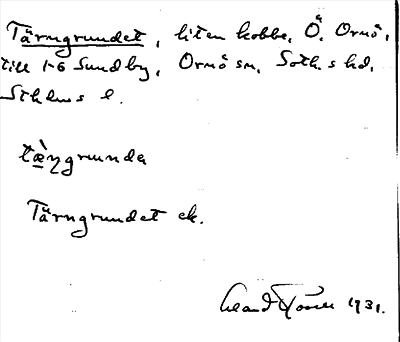 Tärngrundet, liten kobbe, Ö. Ornö,
till 1-6 Sundby, Ornö sn, Soth.s hd,
Sthlms l.
tæ̀ŋgrunda
Tärngrundet ek.
1931.